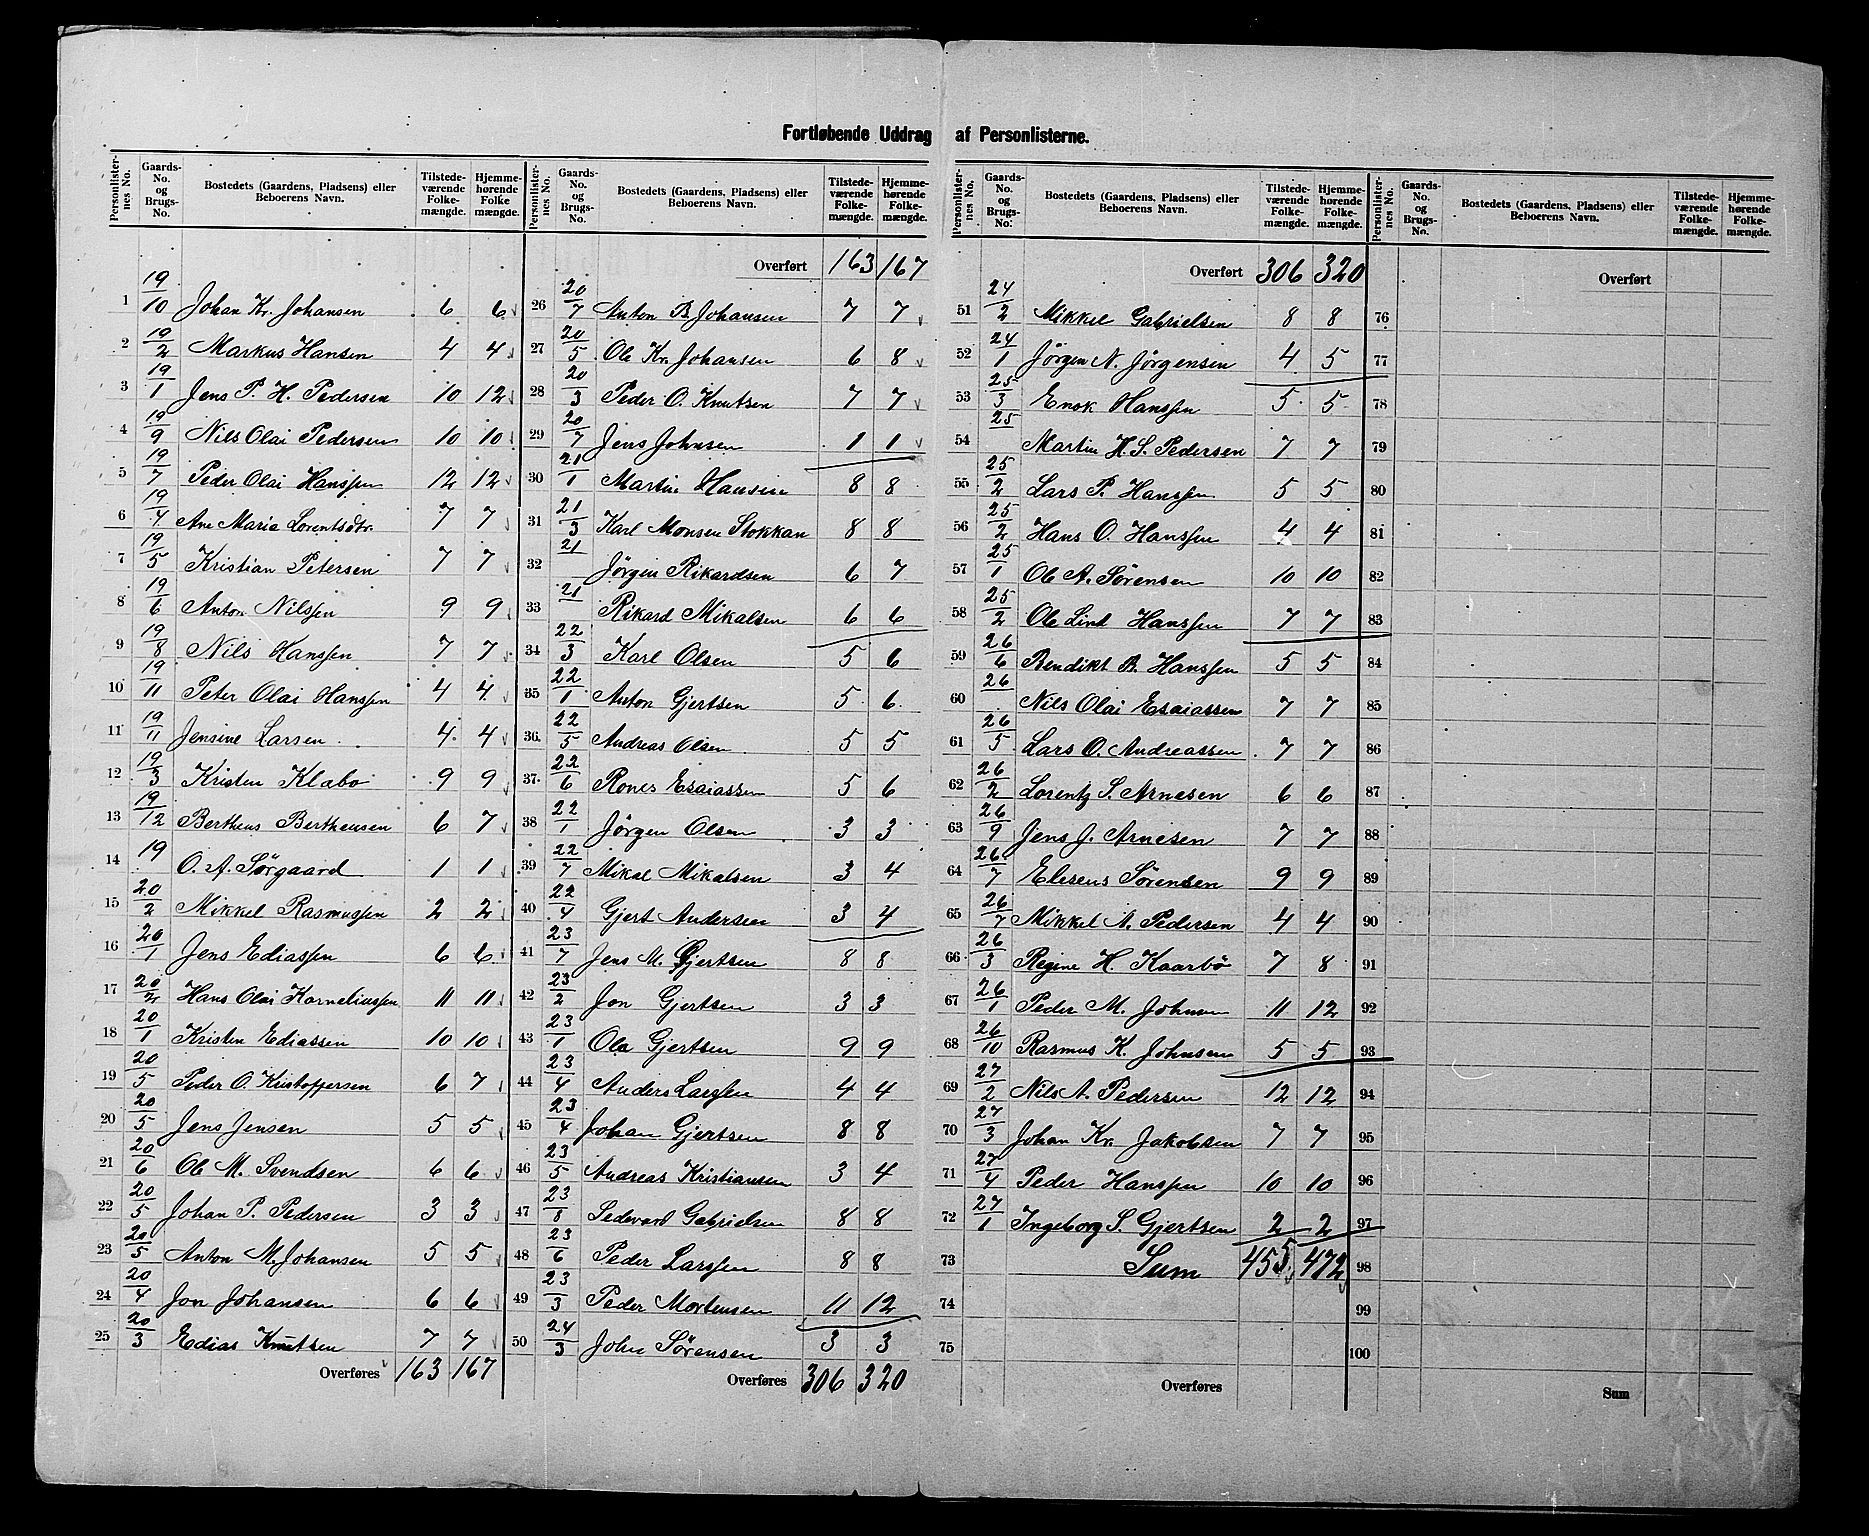 Fortløbende Uddrag af Personlisterne.
Personlister-nes No. | Gaards-No. og Brugs-No. | Bostedets (Gaardens, Pladsens) eller Beboerens Navn. | Tilstede-værende Folke-mængde. | Hjemme-hørende Folke mængde.
1 19/10 Johan Kr. Johansen 6 6
2 19/2 Markus Hansen 4 4
3 19/1 Jens P. H. Pedersen 10 12
4 19/9 Nils Olai Pedersen 10 10
5 19/7 Peder Olai Hanssen 12 12
6 19/4 Ane Maria Lorentsdtr. 7 7
7 19/5 Kristian Petersen 7 7
8 19/6 Anton Nilssen 9 9
9 19/8 Nils Hanssen 7 7
10 19/11 Peter Olai Hanssen 4 4
11 19/11 Jensine Larsen 4 4
12 19/3 Kristen Klabo 9 9
13 19/12 Bertheus Bertheussen 6 7
14 19 O. A. Sørgaard 1 1
15 20/2 Mikkel Rasmussen 2 2
16 20/1 Jens Ediassen 6 6
17 20/2 Hans Olai Korneliussen 11 11
18 20/1 Kristen Ediassen 10 10
19 20/5 Peder O. Kristoffersen 6 7
20 20/5 Jens Jensen 5 5
21 20/6 Ole M. Svendsen 6 6
22 20/5 Johan P. Pedersen 3 3
23 20/5 Anton M. Johansen 5 5
24 20/4 Jon Johansen 6 6
25 20/3 Edias Knutsen 7 7
Overføres 163 167
Personlister-nes No. | Gaards-No. og Brugs-No. | Bostedets (Gaardens, Pladsens) eller Beboerens Navn. | Tilstede-værende Folke-mængde. | Hjemme-hørende Folke-mængde.
Overført 163 167
26 20/7 Anton B. Johansen 7 7
27 20/5 Ole Kr. Johansen 6 8
28 20/3 Peder O. Knutsen 7 7
29 20/7 Jens Johnsen 1 1
30 21/1 Martin Hansen 8 8
31 21/3 Karl Monsen Stokkan 8 8
32 21 Jørgen Rikardsen 6 7
33 21 Rikard Mikalsen 6 6
34 22/3 Karl Olsen 5 6
35 22/1 Anton Gjertsen 5 6
36 22/5 Andreas Olsen 5 5
37 22/6 Rones Esaiassen 5 6
38 22/1 Jørgen Olsen 3 3
39 22/7 Mikal Mikalsen 3 4
40 22/4 Gjert Andersen 3 4
41 23/7 Jens M. Gjertsen 8 8
42 23/2 Jon Gjertsen 3 3
43 23/1 Ola Gjertsen 9 9
44 23/4 Anders Larssen 4 4
45 23/4 Johan Gjertsen 8 8
46 23/5 Andreas Kristiansen 3 4
47 23/8 Sedevard Gabrielsen 8 8
48 23/6 Peder Larssen 8 8
49 23/3 Peder Mortensen 11 12
50 24/3 John Sørensen 3 3
Overføres 306 320
Personlister-nes No. | Gaards-No. og Brugs-No. | Bostedets (Gaardens, Pladsens) eller Beboerens Navn. | Tilstede-værende Folke-mængde. | Hjemme-hørende Folke-mængde.
Overført 306 320
51 24/2 Mikkel Gabrielsen 8 8
52 24/1 Jørgen N. Jørgensen 4 5
53 25/3 Enok Hanssen 5 5
54 25 Martin H. S. Pedersen 7 7
55 25/2 Lars P. Hanssen 5 5
56 25/2 Hans O. Hanssen 4 4
57 25/1 Ole A. Sørensen 10 10
58 25/2 Ole Lind Hanssen 7 7
59 26/6 Bendikt B. Hanssen 5 5
60 26 Nils Olai Esaiassen 7 7
61 26/5 Lars O. Andreassen 7 7
62 26/2 Lorentz S. Arnesen 6 6
63 26/9 Jens J. Arnesen 7 7
64 26/7 Elesens Sørensen 9 9
65 26/7 Mikkel A. Pedersen 4 4
66 26/3 Regine H. Kaarbø 7 8
67 26/1 Peder M. Johnsen 11 12
68 26/10 Rasmus K. Johnsen 5 5
69 27/2 Nils A. Pedersen 12 12
70 27/3 Johan Kr. Jakobsen 7 7
71 27/4 Peder Hanssen 10 10
72 27/1 Ingeborg S. Gjertsen 2 2
73 Sum 455 472
74
75
Overføres
Personlister-nes No. | Gaards-No. og Brugs-No. | Bostedets (Gaardens, Pladsens) eller Beboerens Navn. | Tilstede-værende Folke-mængde. | Hjemme-hørende Folke-mængde.
Overført
76
77
78
79
80
81
82
83
84
85
86
87
88
89
90
91
92
93
94
95
96
97
98
99
100
Sum